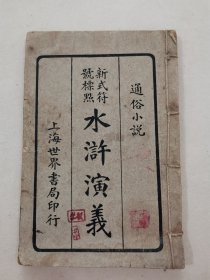 通俗小説
新式符
號標點
水滸演義
上海世界書局印行